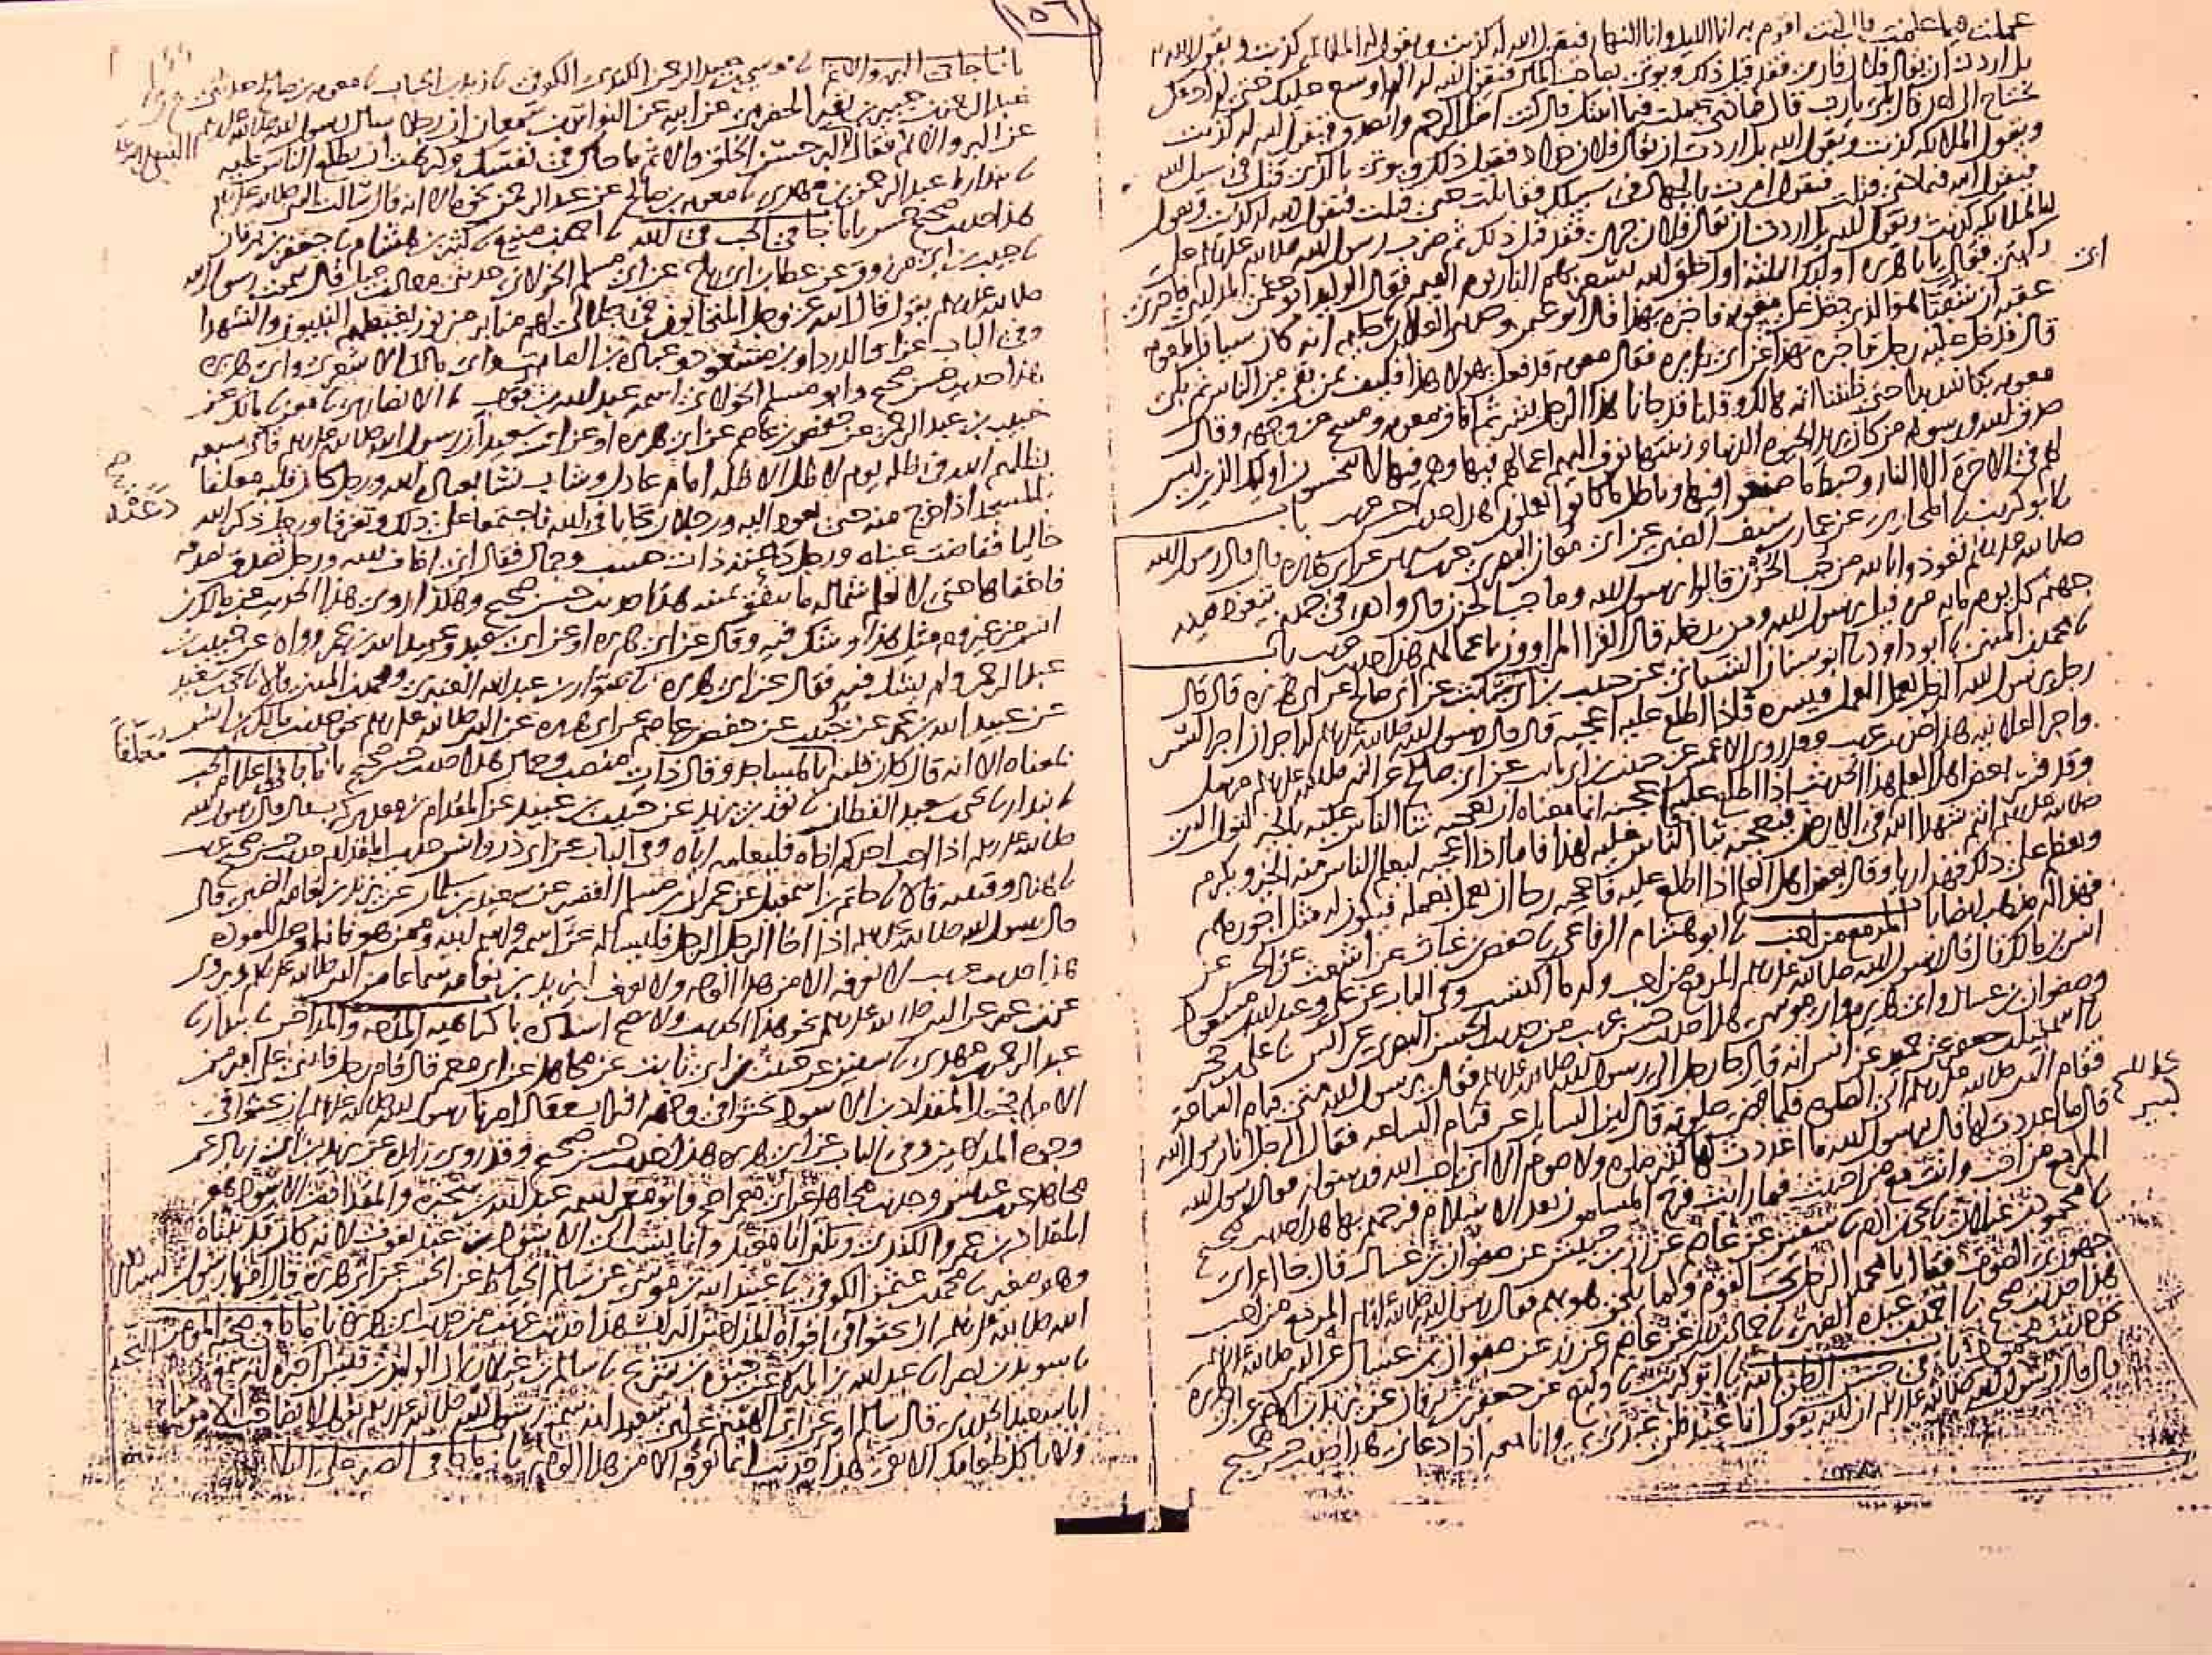 ١٥٦
عملت فيما علمت قال كنت اقوم به انا الليل وانا النهار فيقول الله له كذبت وتقول له الملائكة كذبت ويقول الله
بل اردت ان يقال فلان قارئ فقد قيل ذلك ويوتى بصاحب المال فيقول الله له الم اوسع عليك حتى لم ادعك
تحتاج الى احد قال بلى يارب قال فماذا عملت فيما اتيتك قال كنت اصل الرحم واتصدق فيقول الله له كذبت
وتقول الملائكه كذبت ويقول الله بل اردت ان يقال فلان جواد فقد قيل ذلك ويوتى بالذي قتل في سبيل الله
فيقول الله فيماذا قتلت فيقول امرت بالجهاد في سبيلك فقاتلت حتى قتلت فيقول الله له كذبت وتقول
له الملائكه كذبت ويقول الله بل اردت ان يقال فلان جري فقد قيل ذلك ثم ضرب رسول الله صلى الله عليه وسلم على
ركبتي فقال يابا هريره اوليك الثلثة اول خلق الله تسعر بهم النار يوم القيمه فقال الوليد ابو عثمن المدايني فاخبرني
عقبه ان شفيا هو الذي دخل على معويه فاخبره بهذا قال ابو عثمن وحدثني العلا بن ابي حكيم انه كان سيافا لمعويه
قال فدخل عليه رجل فاخبره بهذا عن ابي هريره فقال معويه قد فعل بهولا هذا فكيف بمن بقي من الناس ثم بكى
معويه بكا شديدا حتى ظننا انه هالك وقلنا قد جانا هذا الرجل بشر ثم افاق معويه ومسح عن وجهه وقال
صدق الله ورسوله من كان يريد الحيوه الدنيا وزينتها نوف اليهم اعمالهم فيها وهم فيها لا يبخسون اوليك الذين ليس
لهم في الاخرة الا النار وحبط ما صنعوا فيها وباطل ما كانوا يعملون هذا حديث حسن غريب باب
ابو كريب المحاربي عن عمار بن سيف الضبي عن ابي معان البصري عن ابن سيرين عن ابي هريره قال قال رسول الله
صلى الله عليه وسلم تعوذوا بالله من جب الحزن قالوا يرسول الله وما جب الحزن قال واد في جهنم تتعوذ منه
جهنم كل يوم مايه مره قيل يرسول الله ومن يدخله قال القرا المراوون باعمالهم هذا حديث غريب باب
محمد بن المثنى ابو داود ابو سنان الشيباني عن حبيب بن ابي ثابت عن ابي صالح عن ابي هريره قال قال
رجل يرسول الله الرجل يعمل العمل فيسره فاذا اطلع عليه اعجبه قال قال رسول الله صلى الله عليه وسلم له اجران اجر السر
واجر العلانيه هذا حديث غريب وقد روى الاعمش عن حبيب بن ابي ثابت عن ابي صالح عن النبي صلى الله عليه وسلم مرسل
وقد فسر بعض اهل العلم هذا الحديث اذا اطلع عليه اعجبه انما معناه ان يعجبه ثنا الناس عليه بالخير لقول النبي
صلى الله عليه وسلم انتم شهدا الله في الارض فيعجبه ثنا الناس عليه لهذا فاما اذا اعجبه ليعلم الناس منه الخير ويكرم
ويعظم على ذلك فهذا ريا وقال بعض اهل العلم اذا اطلع عليه فاعجبه رجا ان يعمل بعمله فيكون له مثل اجورهم
فهذا له مذهب ايضا باب المرء مع من احب ابو هشام الرفاعي حفص بن غياث عن اشعث عن الحسن عن
انس بن مالك قال قال رسول الله صلى الله عليه وسلم المرء مع من احب وله ما اكتسب وفي الباب عن علي وعبد الله بن مسعود
وصفوان بن عسال وابي هريره وابي موسى هذا حديث حسن غريب من حديث الحسن البصري عن انس علي بن حجر
اسمعيل بن جعفر عن حميد عن انس انه قال جا رجل الى رسول الله صلى الله عليه وسلم فقال يرسول الله متى قيام الساعة
فقام النبي صلى الله عليه وسلم الى الصلوه فلما قضى صلوته قال اين السايل عن قيام الساعه فقال الرجل انا يرسول الله
قال ما اعددت لها قال يرسول الله ما اعددت لها كثير صلوه ولا صوم الا اني احب الله ورسوله فقال رسول الله
المرء مع من احب وانت مع من احببت فما رايت فرح المسلمون بعد الاسلام فرحهم بها هذا حديث صحيح
محمود بن غيلان يحيى بن ادم سفين عن عاصم عن زر بن حبيش عن صفوان بن عسال قال جا اعرابي
جهوري الصوت فقال يا محمد الرجل يحب القوم ولما يلحق هو بهم فقال رسول الله صلى الله عليه وسلم المرء مع من احب
هذا حديث صحيح احمد بن عبده الضبي حماد بن زيد عن عاصم عن زر عن صفوان بن عسال عن النبي صلى الله عليه وسلم
نحو حديث محمود باب في حسن الظن بالله ابو كريب وكيع عن جعفر بن برقان عن يزيد بن الاصم عن ابي هريره
قال قال رسول الله صلى الله عليه وسلم ان الله يقول انا عند ظن عبدي بي وانا معه اذا دعاني هذا حديث حسن صحيح
باب ما جا في البر والاثم موسى بن عبد الرحمن الكندي الكوفي زيد بن الحباب معويه بن صالح حدثني
عبد الرحمن بن جبير بن نفير الحضرمي عن ابيه عن النواس بن سمعان ان رجلا سال رسول الله صلى الله عليه وسلم
عن البر والاثم فقال البر حسن الخلق والاثم ما حاك في نفسك وكرهت ان يطلع الناس عليه
بندار عبد الرحمن بن مهدي معويه بن صالح عن عبد الرحمن نحوه الا انه قال سالت النبي صلى الله عليه وسلم
هذا حديث صحيح حسن باب ما جا في الحب في الله احمد بن منيع كثير بن هشام جعفر بن برقان
حبيب بن ابي مرزوق عن عطا بن ابي رباح عن ابي مسلم الخولاني حدثني معاذ بن جبل قال سمعت رسول الله
صلى الله عليه وسلم يقول قال الله عز وجل المتحابون في جلالي لهم منابر من نور يغبطهم النبيون والشهدا
وفي الباب عن ابي الدردا وبن مسعود وعباده بن الصامت وابي مالك الاشعري وابي هريره
هذا حديث حسن صحيح وابو مسلم الخولاني اسمه عبد الله بن ثوب الانصاري معن مالك عن
خبيب بن عبد الرحمن عن حفص بن عاصم عن ابي هريره او عن ابي سعيد ان رسول الله صلى الله عليه وسلم قال سبعه
يظلهم الله في ظله يوم لا ظل الا ظله امام عادل وشاب نشا بعباده الله ورجل كان قلبه معلقا
بالمسجد اذا خرج منه حتى يعود اليه ورجلان تحابا في الله فاجتمعا على ذلك وتفرقا ورجل ذكر الله
خاليا ففاضت عيناه ورجل دعته ذات حسب وجمال فقال اني اخاف الله ورجل تصدق بصدقه
فاخفاها حتى لا تعلم شماله ما تنفق يمينه هذا حديث حسن صحيح وهكذا روي هذا الحديث عن مالك بن
انس من غير وجه مثل هذا وشك فيه وقال عن ابي هريره او عن ابي سعيد وعبيد الله بن عمر رواه عن خبيب بن
عبد الرحمن ولم يشك فيه فقال عن ابي هريره سوار بن عبد الله العنبري ومحمد بن المثنى قالا يحيى بن سعيد
عن عبيد الله بن عمر عن خبيب عن حفص بن عاصم عن ابي هريره عن النبي صلى الله عليه وسلم نحو حديث مالك بن انس
بمعناه الا انه قال كان قلبه بالمساجد وقال ذات منصب وجمال هذا حديث حسن صحيح باب ما جا في اعلام الحب
بندار يحيى بن سعيد القطان ثور بن يزيد عن حبيب بن عبيد عن المقدام بن معدي كرب قال قال رسول الله
صلى الله عليه وسلم اذا احب احدكم اخاه فليعلمه اياه وفي الباب عن ابي ذر وانس حديث المقدام حديث حسن صحيح غريب
هناد وقتيبه قالا حاتم بن اسمعيل عن عمران بن مسلم القصير عن سعيد بن سلمان عن يزيد بن نعامه الضبي قال
قال رسول الله صلى الله عليه وسلم اذا اخا الرجل الرجل فليساله عن اسمه واسم ابيه وممن هو فانه اوصل للموده
هذا حديث غريب لا نعرفه الا من هذا الوجه ولا نعرف ليزيد بن نعامه سماعا من النبي صلى الله عليه وسلم ويروى
عن بن عمر عن النبي صلى الله عليه وسلم نحو هذا الحديث ولا يصح اسناده باب كراهيه المدحه والمداحين بندار
عبد الرحمن بن مهدي سفين عن حبيب بن ابي ثابت عن مجاهد عن ابي معمر قال قام رجل فاثنى على امير من
الامرا فجعل المقداد بن الاسود يحثو في وجهه التراب وقال امرنا رسول الله صلى الله عليه وسلم ان نحثو في
وجوه المداحين وفي الباب عن ابي هريره هذا حديث حسن صحيح وقد روى زايده عن يزيد بن ابي زياد عن
مجاهد عن بن عباس وحديث مجاهد عن ابي معمر اصح وابو معمر اسمه عبد الله بن سخبره والمقداد بن الاسود هو
المقداد بن عمرو الكندي ويكنى ابا معبد وانما ينسب الى الاسود بن عبد يغوث لانه كان قد تبناه
وهو صغير محمد بن عثمن الكوفي عبيد الله بن موسى عن سالم الخياط عن الحسن عن ابي هريره قال امرنا رسول
الله صلى الله عليه وسلم ان نحثو في افواه المداحين التراب هذا حديث غريب من حديث ابي هريره باب ما جا في صحبة المومن
سويد بن نصر عبد الله بن المبارك عن حيوه بن شريح سالم بن غيلان ان الوليد بن قيس اخبره انه سمع
ابا سعيد الخدري قال سالم او عن ابي الهيثم عن ابي سعيد انه سمع رسول الله صلى الله عليه وسلم يقول لا تصاحب الا مومنا
ولا ياكل طعامك الا تقي هذا حديث انما نعرفه الا من هذا الوجه باب ما جا في الصبر على البلا